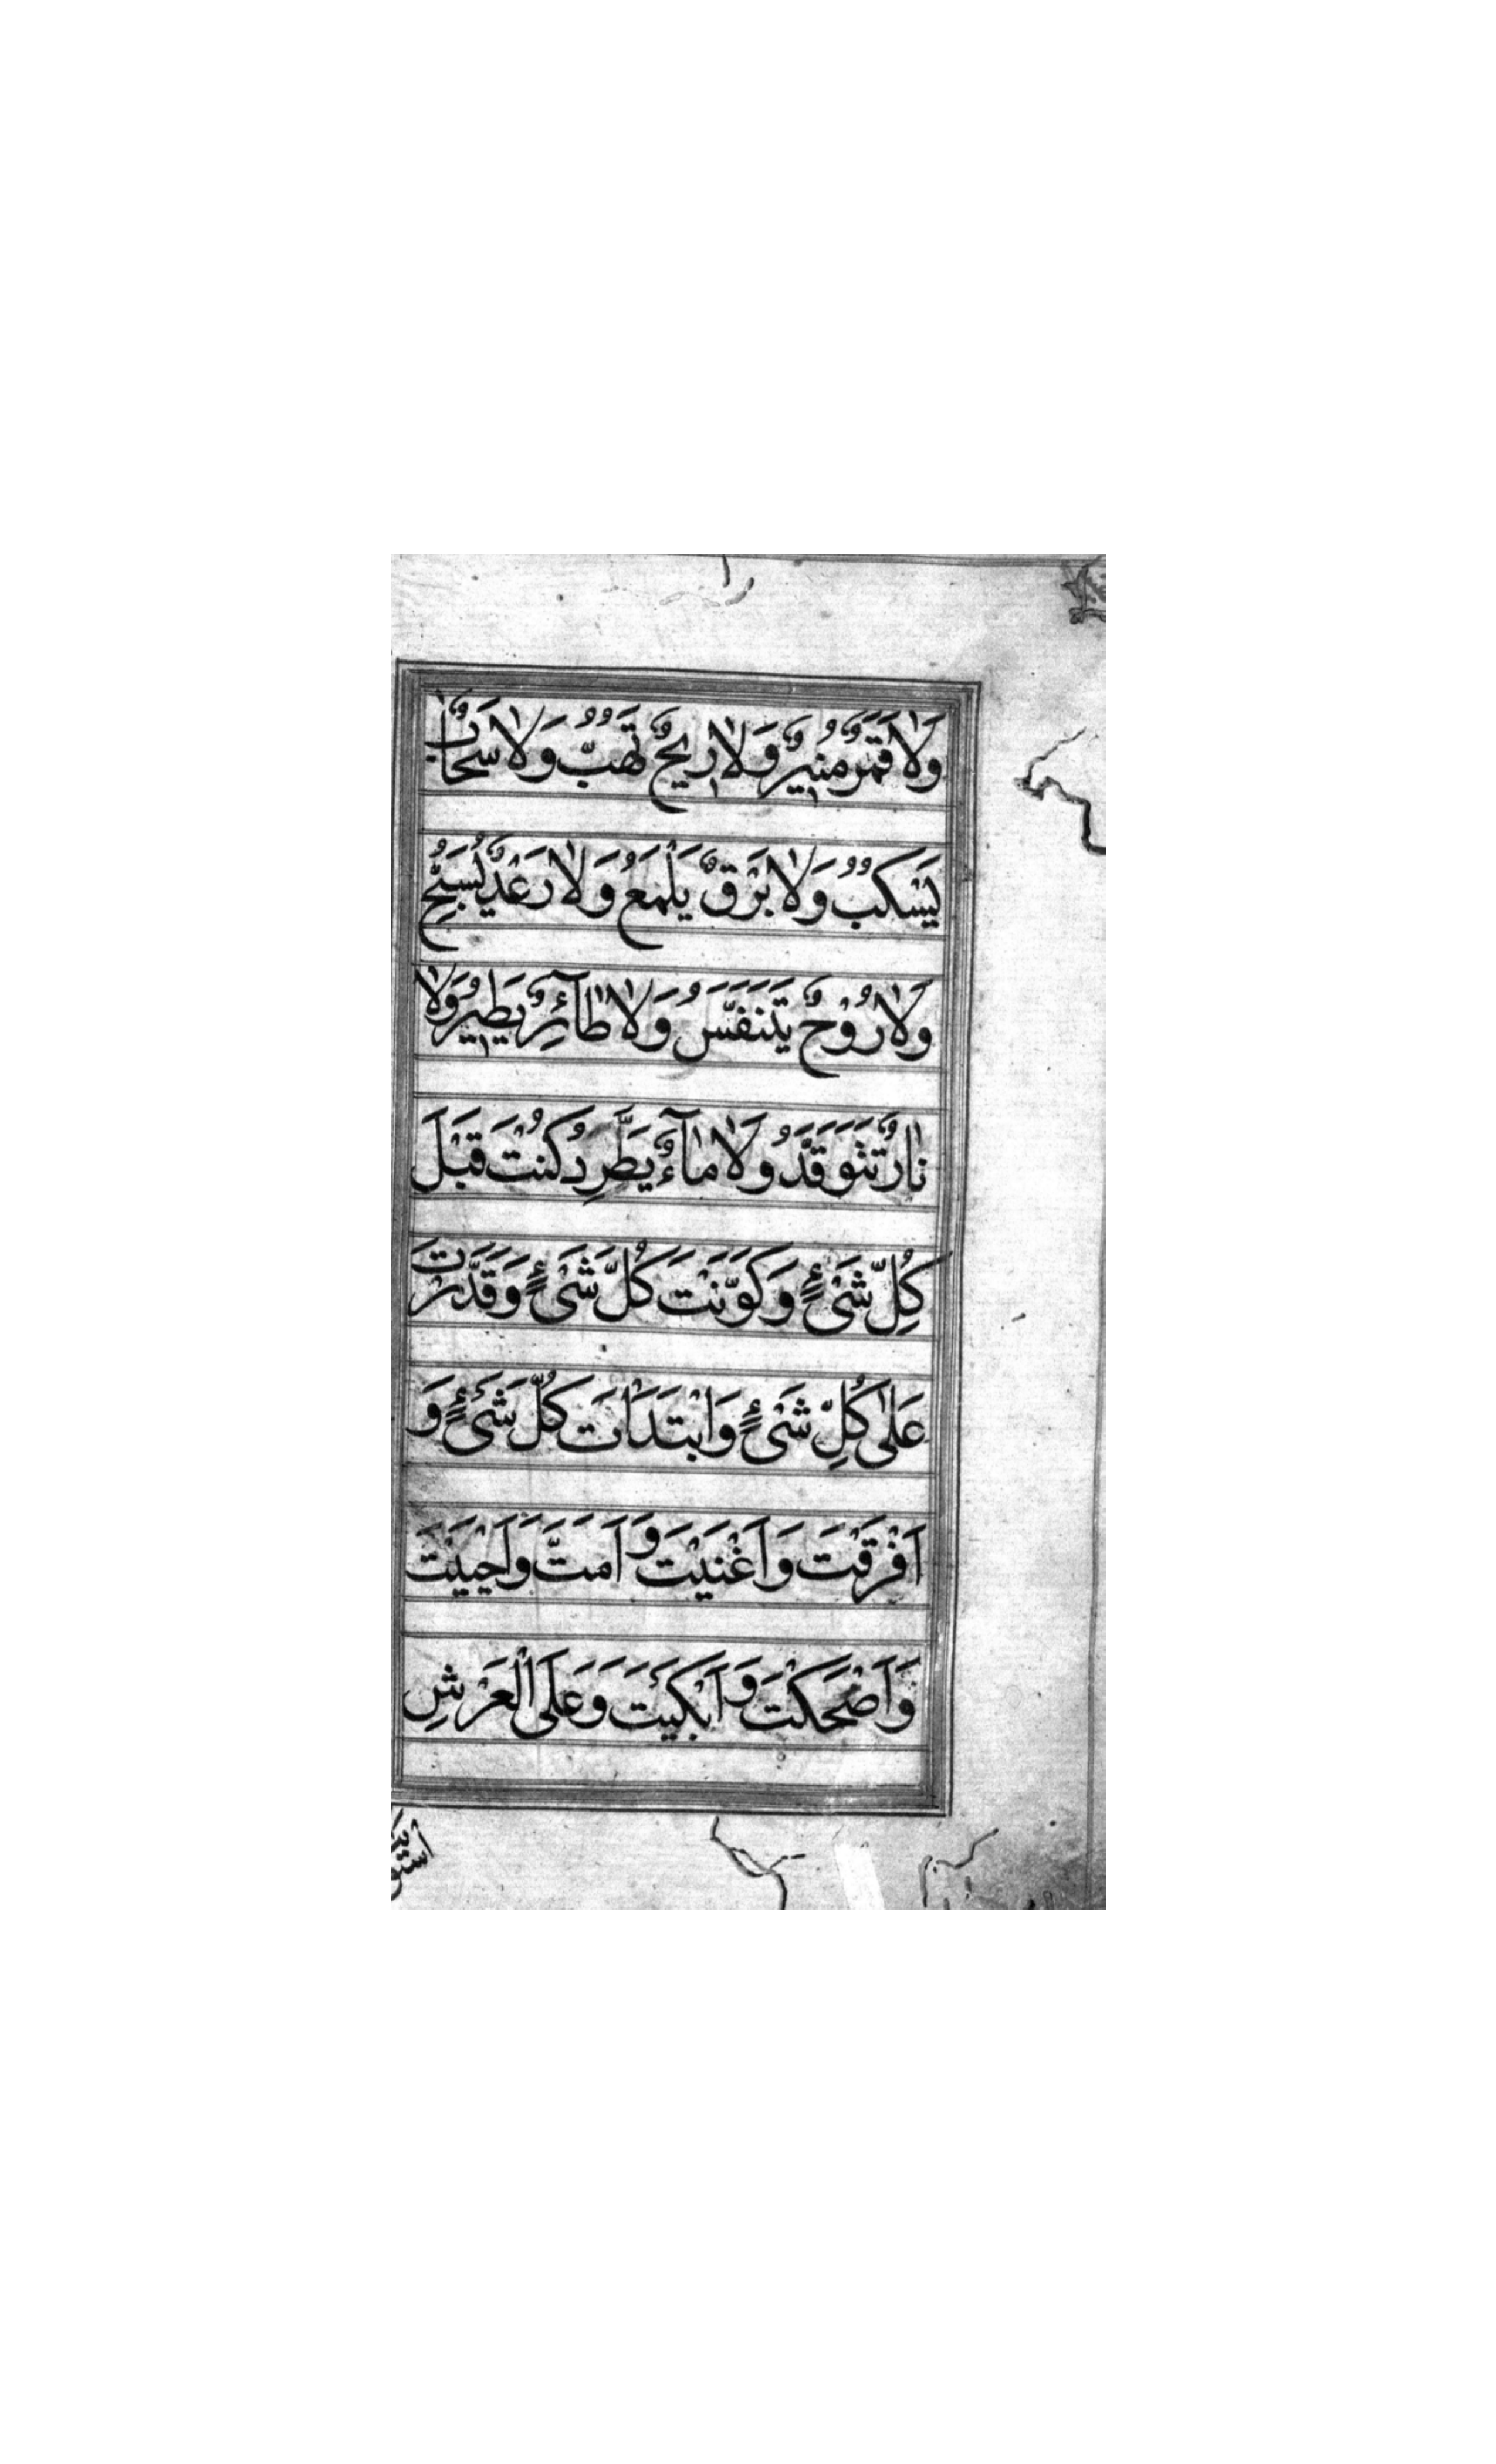 وَلَا قَمَرٌ مُنِيرٌ وَلَا رِيحٌ تَهُبُّ وَلَا سَحَابٌ
يَسْكُبُ وَلَا بَرْقٌ يَلْمَعُ وَلَا رَعْدٌ يُسَبِّحُ
وَلَا رُوْحٌ يَتَنَفَّسُ وَلَا طَآئِرٌ يَطِيرُ وَلَا
نَارٌ تَتَوَقَّدُ وَلَا مَآءٌ يَطَّرِدُ كُنْتَ قَبْلَ
كُلِّ شَیْءٍ وَكَوَّنْتَ كُلَّ شَیْءٍ وَقَدَّرْتَ
عَلٰی كُلِّ شَیْءٍ وَابْتَدَاْتَ كُلَّ شَیْءٍ وَ
اَفْرَقْتَ وَاَغْنَيْتَ وَ اَمَتَّ وَاَحْيَيْتَ
وَاَضْحَكْتَ وَ اَبْكَيْتَ وَعَلَی الْعَرْشِ